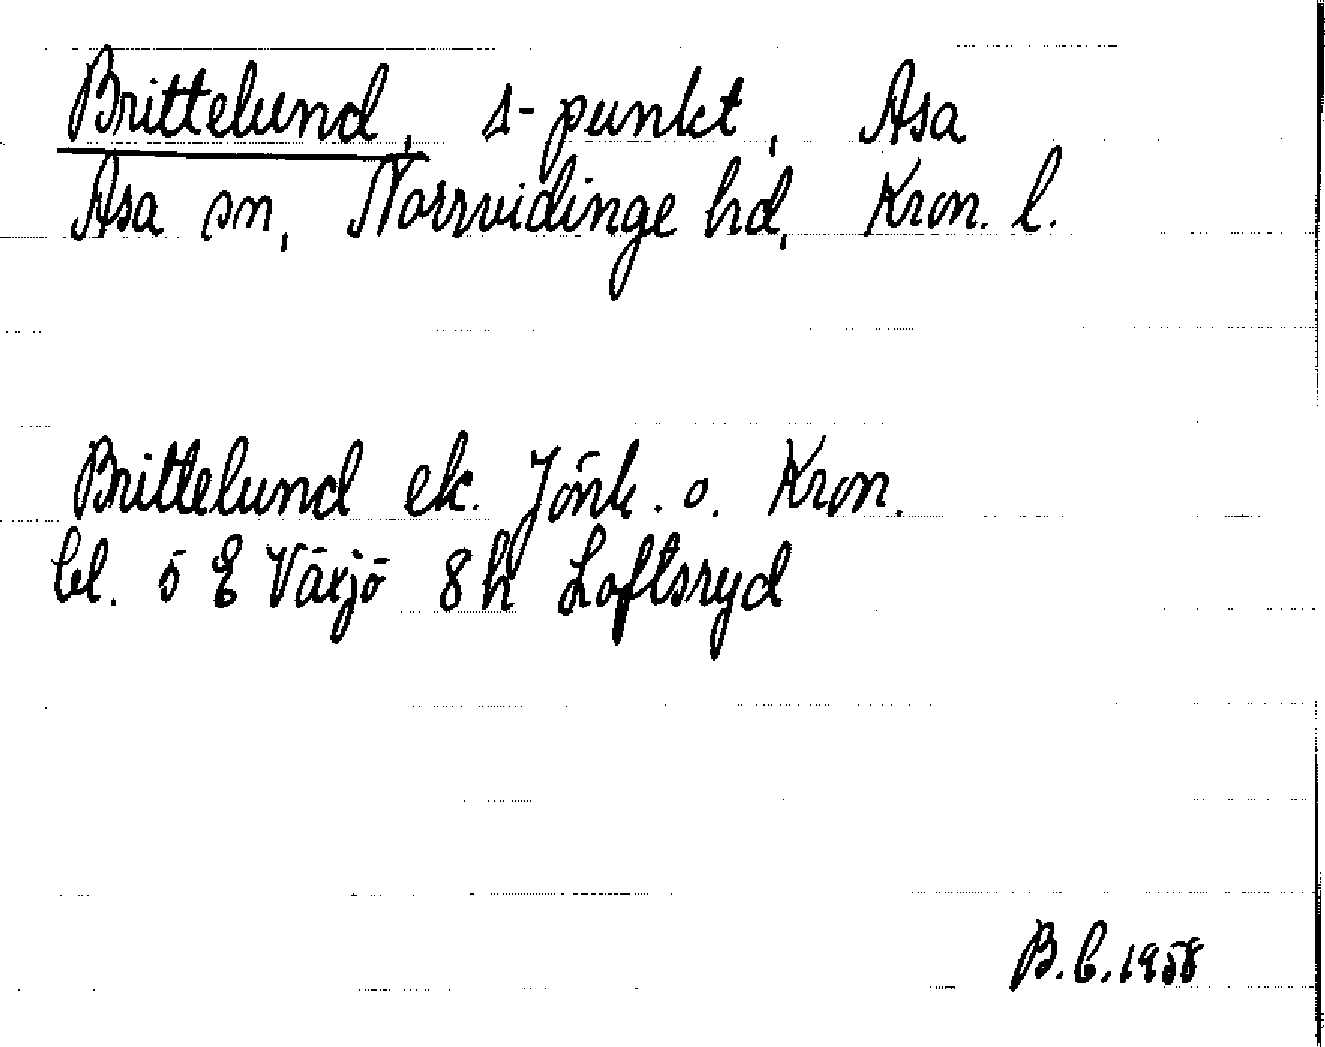 Brittelund, s-punkt, Asa
Asa sn, Norrvidinge hd, Kron. l.
Brittelund ek. Jönk. o. Kron.
bl. 5 E Växjö 8h Loftsryd
B.C.1958